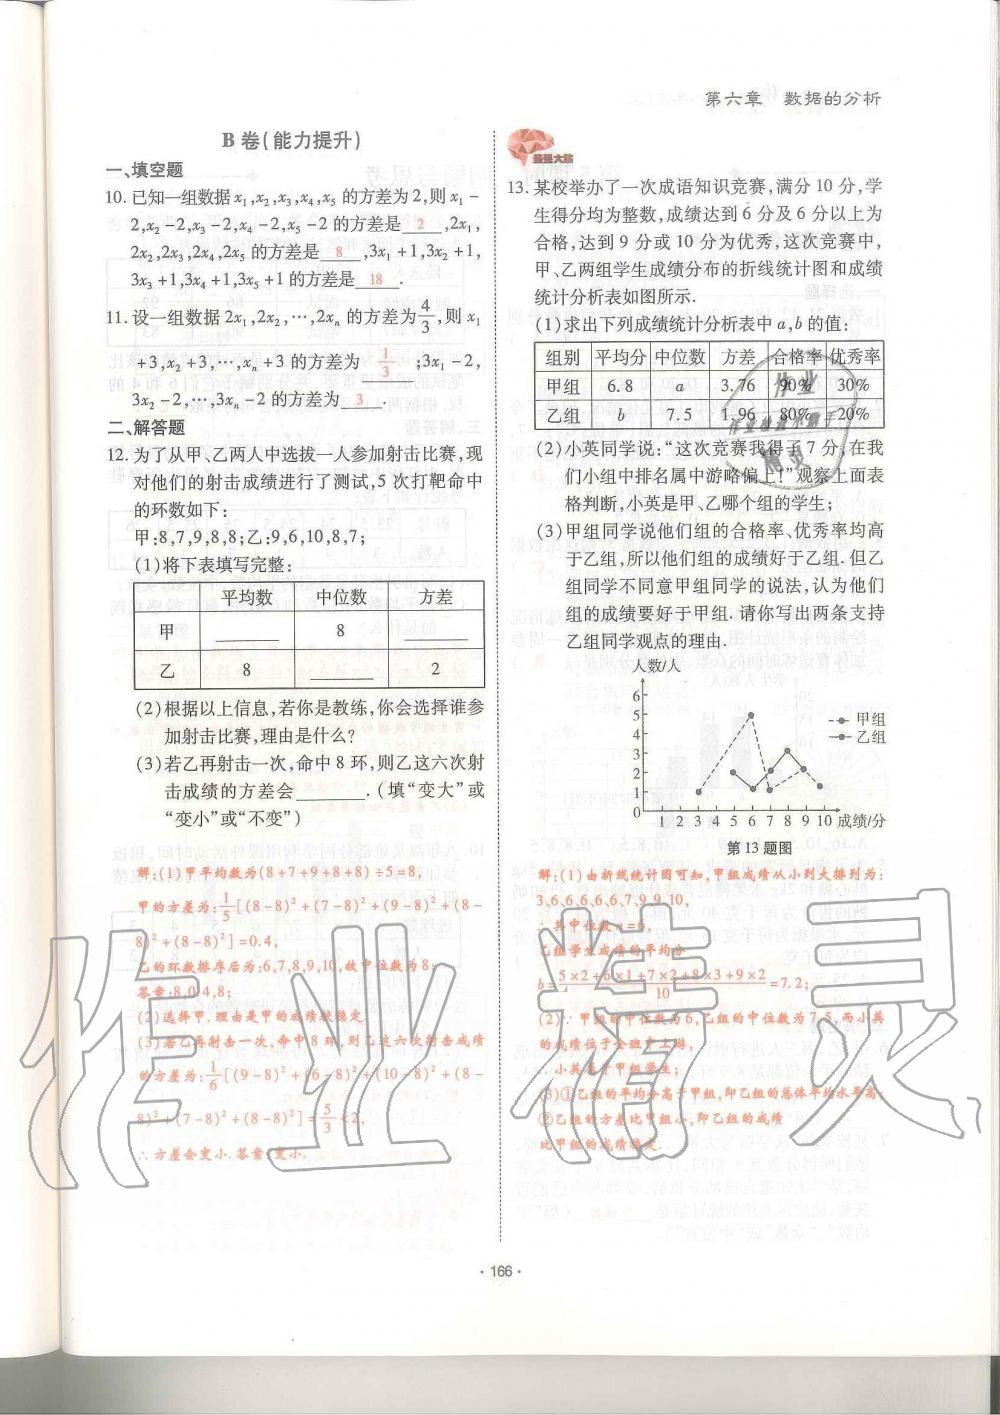 第六章 数据的分析
B 卷(能力提升)
一、填空题
10. 已知一组数据 x₁,x₂,x₃,x₄,x₅ 的方差为 2,则 x₁-
2,x₂-2,x₃-2,x₄-2,x₅-2 的方差是 2 ,2x₁,
2x₂,2x₃,2x₄,2x₅ 的方差是 8 ,3x₁+1,3x₂+1,
3x₃+1,3x₄+1,3x₅+1 的方差是 18 .
11. 设一组数据 2x₁,2x₂,…,2xₙ 的方差为 4/3,则 x₁
+3,x₂+3,…,xₙ+3 的方差为 1/3 ;3x₁-2,
3x₂-2,…,3xₙ-2 的方差为 3 .
二、解答题
12. 为了从甲、乙两人中选拔一人参加射击比赛,现
对他们的射击成绩进行了测试,5 次打靶命中
的环数如下:
甲:8,7,9,8,8;乙:9,6,10,8,7;
(1)将下表填写完整:
平均数 中位数 方差
甲 ______ 8 ______
乙 8 ______ 2
(2)根据以上信息,若你是教练,你会选择谁参
加射击比赛,理由是什么?
(3)若乙再射击一次,命中 8 环,则乙这六次射
击成绩的方差会______.(填“变大”或
“变小”或“不变”)
解:(1)甲平均数为(8+7+9+8+8)÷5=8,
甲的方差为:1/5[(8-8)²+(7-8)²+(9-8)²+(8-
8)²+(8-8)²]=0.4,
乙的环数排序后为:6,7,8,9,10,故中位数为 8;
答案:8,0.4,8;
(2)选择甲.理由是甲的成绩较稳定.
(3)若乙再射击一次,命中 8 环,则乙这六次射击成绩
的方差为:1/6[(9-8)²+(6-8)²+(10-8)²+(8-
8)²+(7-8)²+(8-8)²]=5/3<2,
∴方差会变小.答案:变小.
最强大脑
13. 某校举办了一次成语知识竞赛,满分 10 分,学
生得分均为整数,成绩达到 6 分及 6 分以上为
合格,达到 9 分或 10 分为优秀,这次竞赛中,
甲、乙两组学生成绩分布的折线统计图和成绩
统计分析表如图所示.
(1)求出下列成绩统计分析表中 a,b 的值:
组别 平均分 中位数 方差 合格率 优秀率
甲组 6.8 a 3.76 90% 30%
乙组 b 7.5 1.96 80% 20%
(2)小英同学说:“这次竞赛我得了 7 分,在我
们小组中排名属中游略偏上!”观察上面表
格判断,小英是甲、乙哪个组的学生;
(3)甲组同学说他们组的合格率、优秀率均高
于乙组,所以他们组的成绩好于乙组.但乙
组同学不同意甲组同学的说法,认为他们
组的成绩要好于甲组.请你写出两条支持
乙组同学观点的理由.
人数/人
6
5
4
3
2
1
0
1 2 3 4 5 6 7 8 9 10 成绩/分
甲组
乙组
第 13 题图
解:(1)由折线统计图可知,甲组成绩从小到大排列为:
3,6,6,6,6,6,7,9,9,10,
∴其中位数 a=6,
乙组学生成绩的平均分
b=(5×2+6×1+7×2+8×3+9×2)/10=7.2;
(2)∵甲组的中位数为 6,乙组的中位数为 7.5,而小英
的成绩位于全班中上游,
∴小英属于甲组学生;
(3)①乙组的平均分高于甲组,即乙组的总体平均水平高;
②乙组的方差比甲组小,即乙组的成绩
比甲组的成绩稳定.
作业精灵
· 166 ·